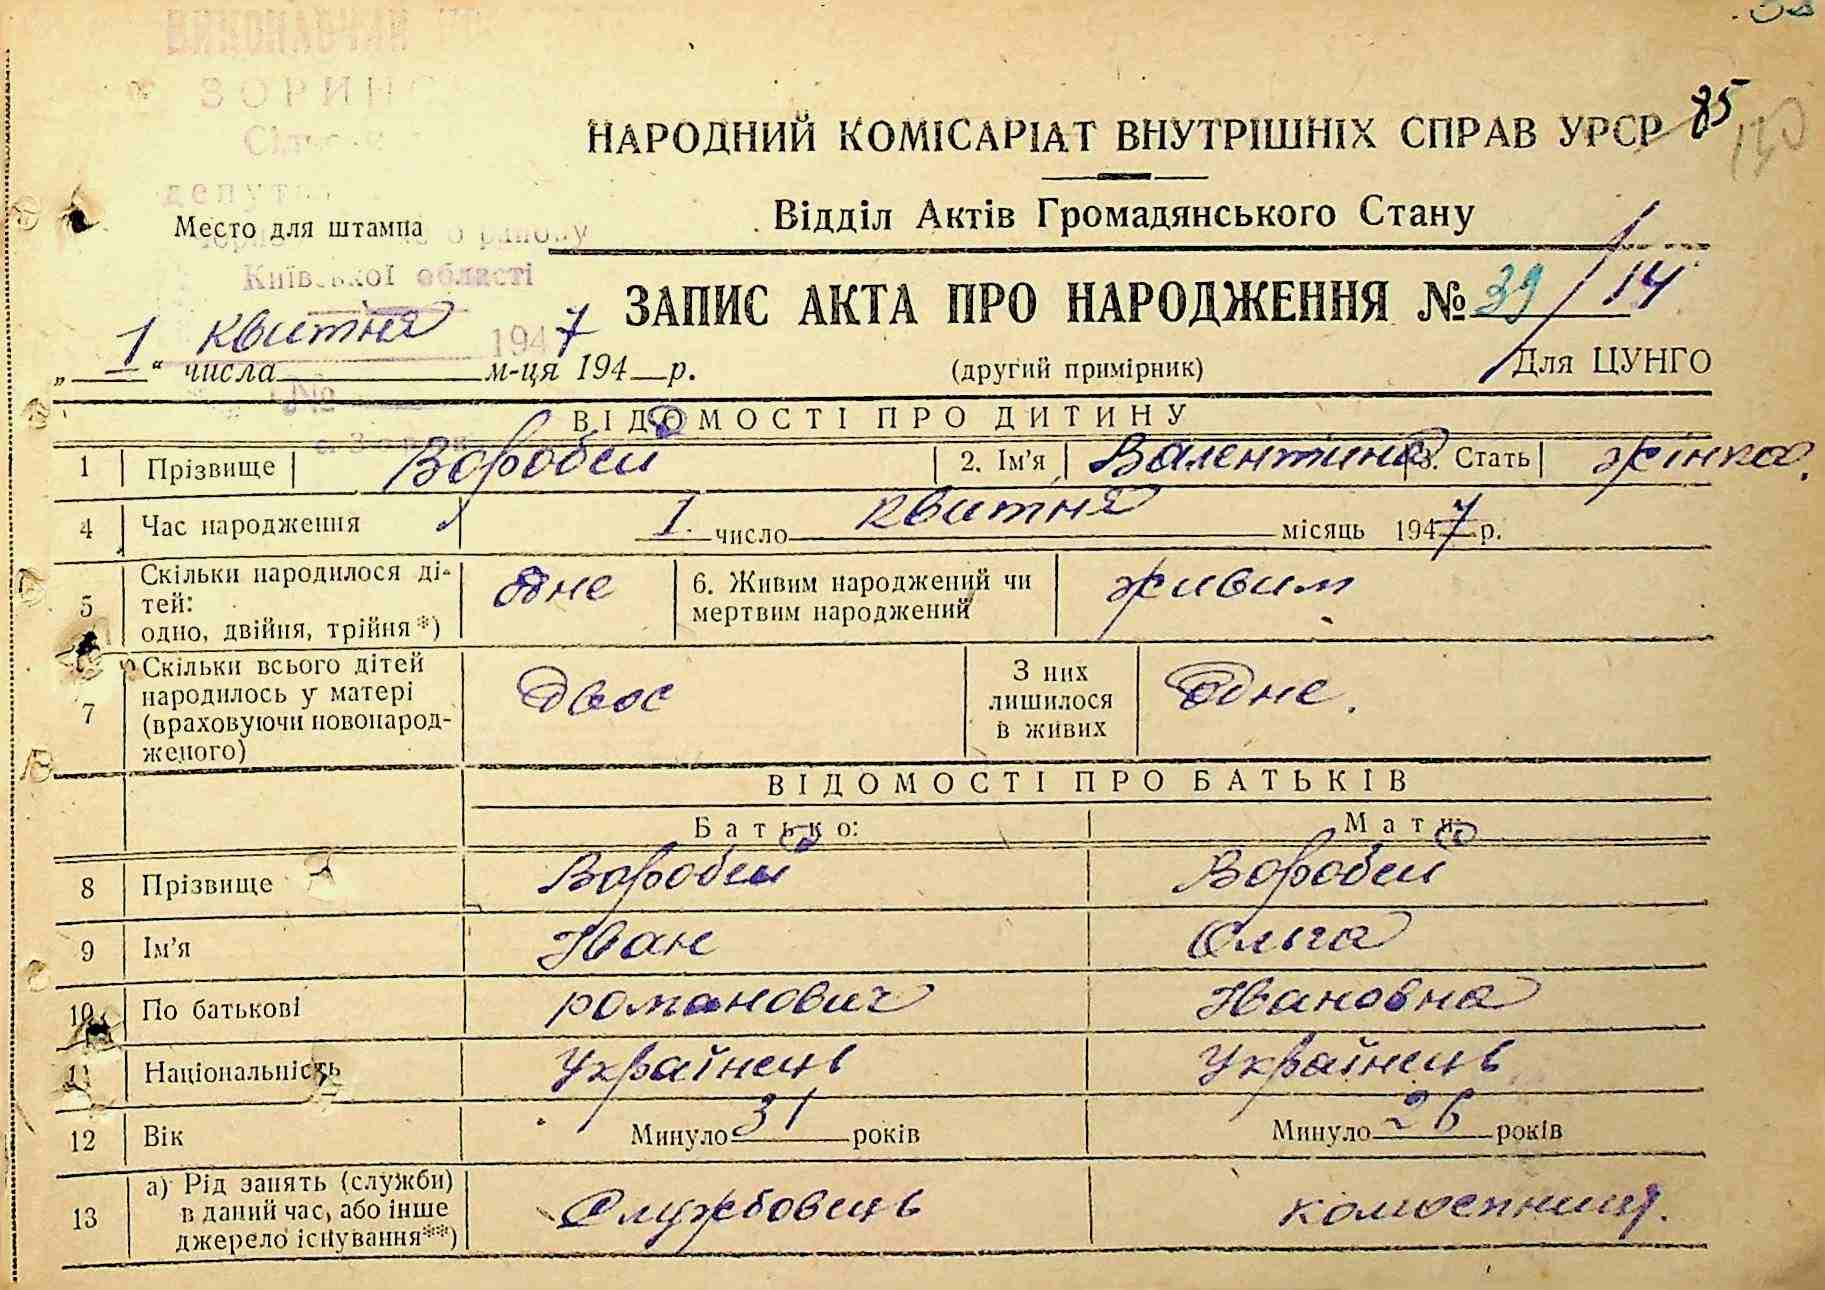 ВИКОНАВЧИЙ
ЗОРИН
Місто для штампа
Київської області
НАРОДНИЙ КОМІСАРІАТ ВНУТРІШНІХ СПРАВ УРСР 85
Відділ Актів Громадянського Стану
ЗАПИС АКТА ПРО НАРОДЖЕННЯ № 39/14
1 квитня 1947
„ “ числа м-ця 194 р. (другий примірник) Для ЦУНГО
№
ВІДОМОСТІ ПРО ДИТИНУ
1 Прізвище Воробей 2. Ім'я Валентина 3. Стать жінка.
4 Час народження 1. число квитня місяць 1947 р.
5 Скільки народилося ді-
тей:
одно, двійня, трійня*) одне 6. Живим народжений чи
мертвим народжений живим
7 Скільки всього дітей
народилось у матері
(враховуючи новонарод-
женого) двоє З них
лишилося
в живих одне.
ВІДОМОСТІ ПРО БАТЬКІВ
Батько: Мати:
8 Прізвище Воробей Воробей
9 Ім'я Іван Ольга
10 По батькові романович Івановна
11 Національність Українець Українець
12 Вік Минуло 31 років Минуло 26 років
13 а) Рід занять (служби)
в даний час, або інше
джерело існування**) Службовець